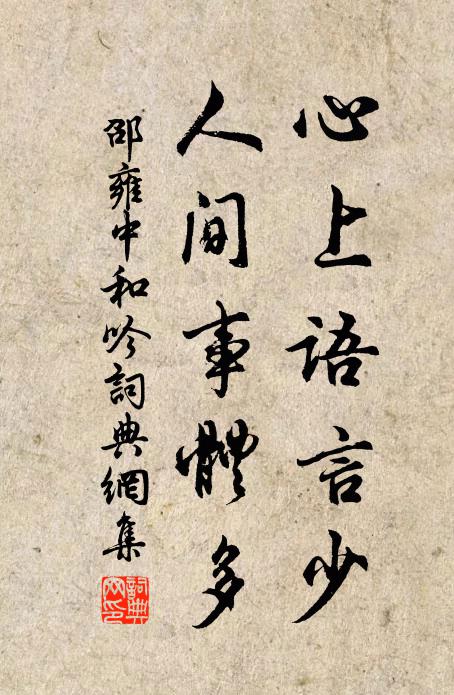 心上語言少
人間事體多
邵雍中和吟詞典網集
詞典
网印